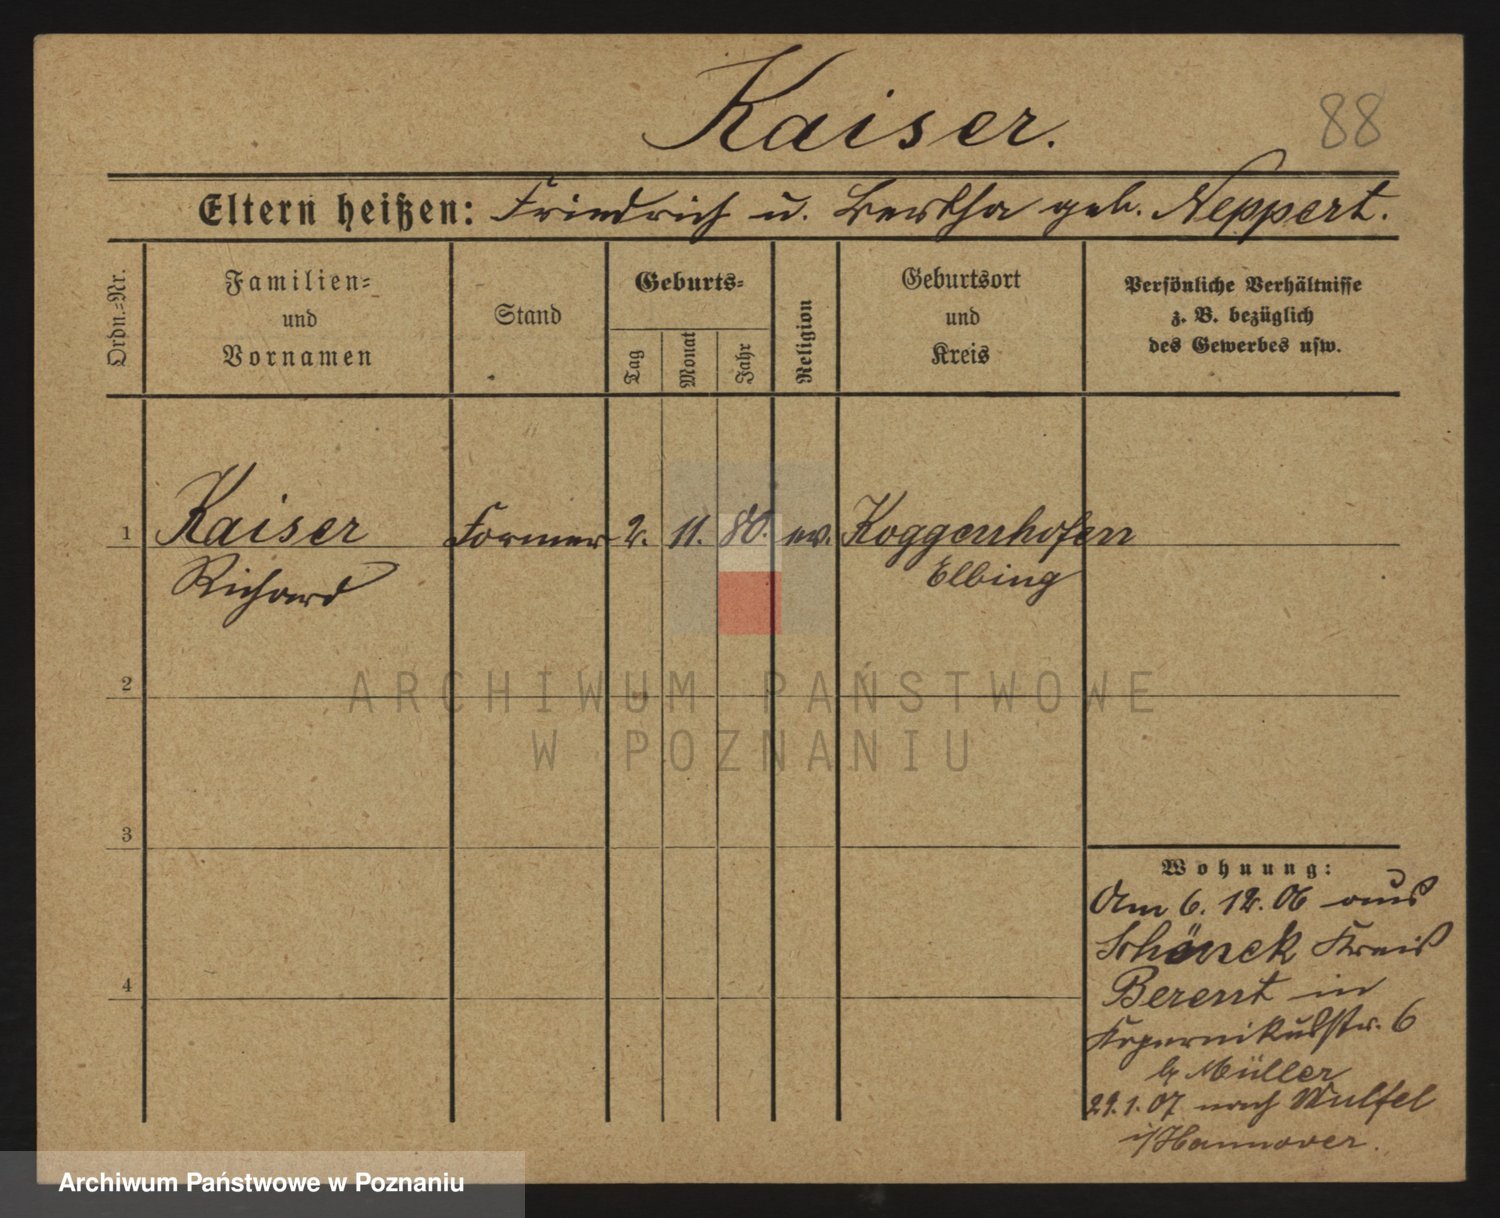 Kaiser.
88
Eltern heißen: Friedrich u. Bertha geb. Neppert.
Ordn.=Nr.
Familien=
und
Vornamen
Stand
Geburts=
Tag
Monat
Jahr
Religion
Geburtsort
und
Kreis
Persönliche Verhältnisse
z. B. bezüglich
des Gewerbes usw.
1 Kaiser Former 2. 11. 80. ev. Koggenhofen
Richard Elbing
2
ARCHIWUM PAŃSTWOWE
W POZNANIU
3
Wohnung:
Am 6. 12. 06 aus
Schöneck Kreis
4
Berent in
Kopernikusstr. 6
b/ Müller
29.1.07 nach Wulfel
i/Hannover.
Archiwum Państwowe w Poznaniu